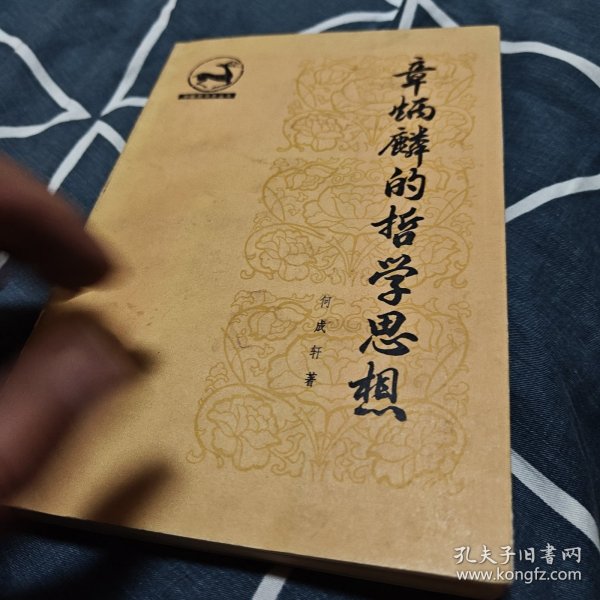 章炳麟的哲学思想
何成轩著
孔夫子旧书网
www.kongfz.com